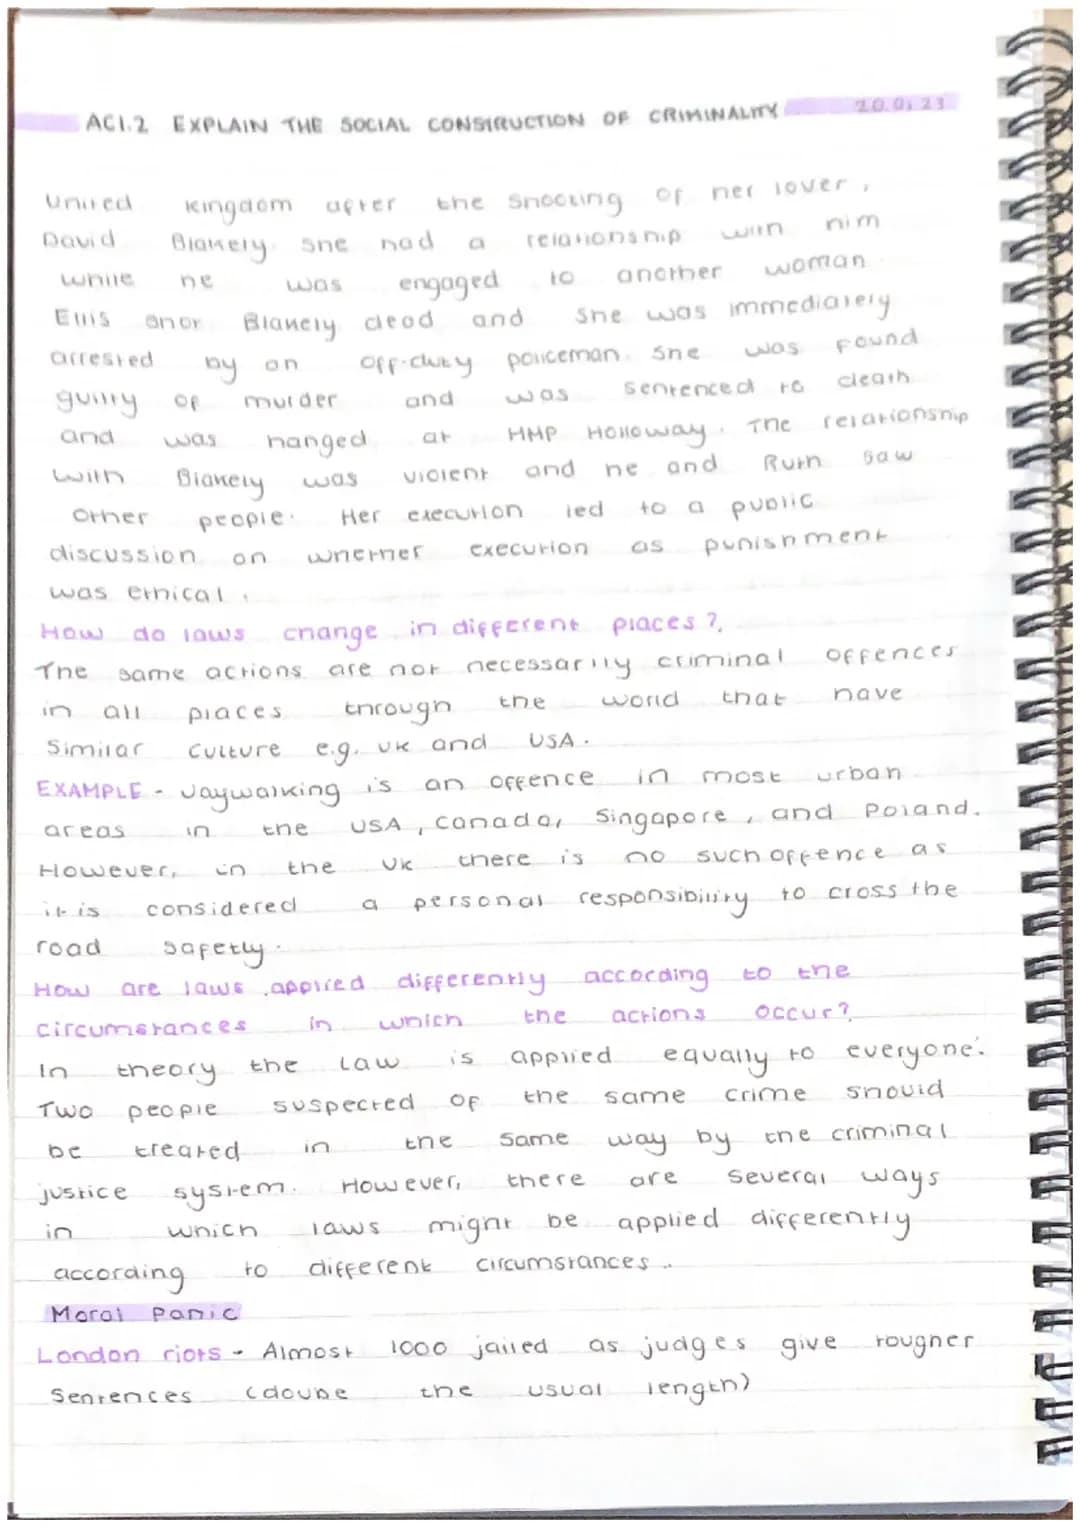 AC1.2 EXPLAIN THE SOCIAL CONSTRUCTION OF CRIMINALITY 20.01.23
United Kingdom after the shooting of her lover,
David Blakely. She had a relationship with him
while he was engaged to another woman
Ellis shot Blakely dead and she was immediately
arrested by an off-duty policeman. She was found
guilty of murder and was sentenced to death
and was hanged at HMP Holloway. The relationship
with Blakely was violent and he and Ruth saw
other people. Her execution led to a public
discussion on whether execution as punishment
was ethical.
How do laws change in different places?
The same actions are not necessarily criminal offences
in all places through the world that have
similar culture e.g. UK and USA.
EXAMPLE - Jaywalking is an offence in most urban
areas in the USA, Canada, Singapore, and Poland.
However, in the UK there is no such offence as
it is considered a personal responsibility to cross the
road safetly.
How are laws applied differently according to the
circumstances in which the actions occur?
In theory the law is applied equally to everyone.
Two people suspected of the same crime should
be treated in the same way by the criminal
justice system. However, there are several ways
in which laws might be applied differently
according to different circumstances..
Moral Panic
London riots - Almost 1000 jailed as judges give rougher
sentences (double the usual length)